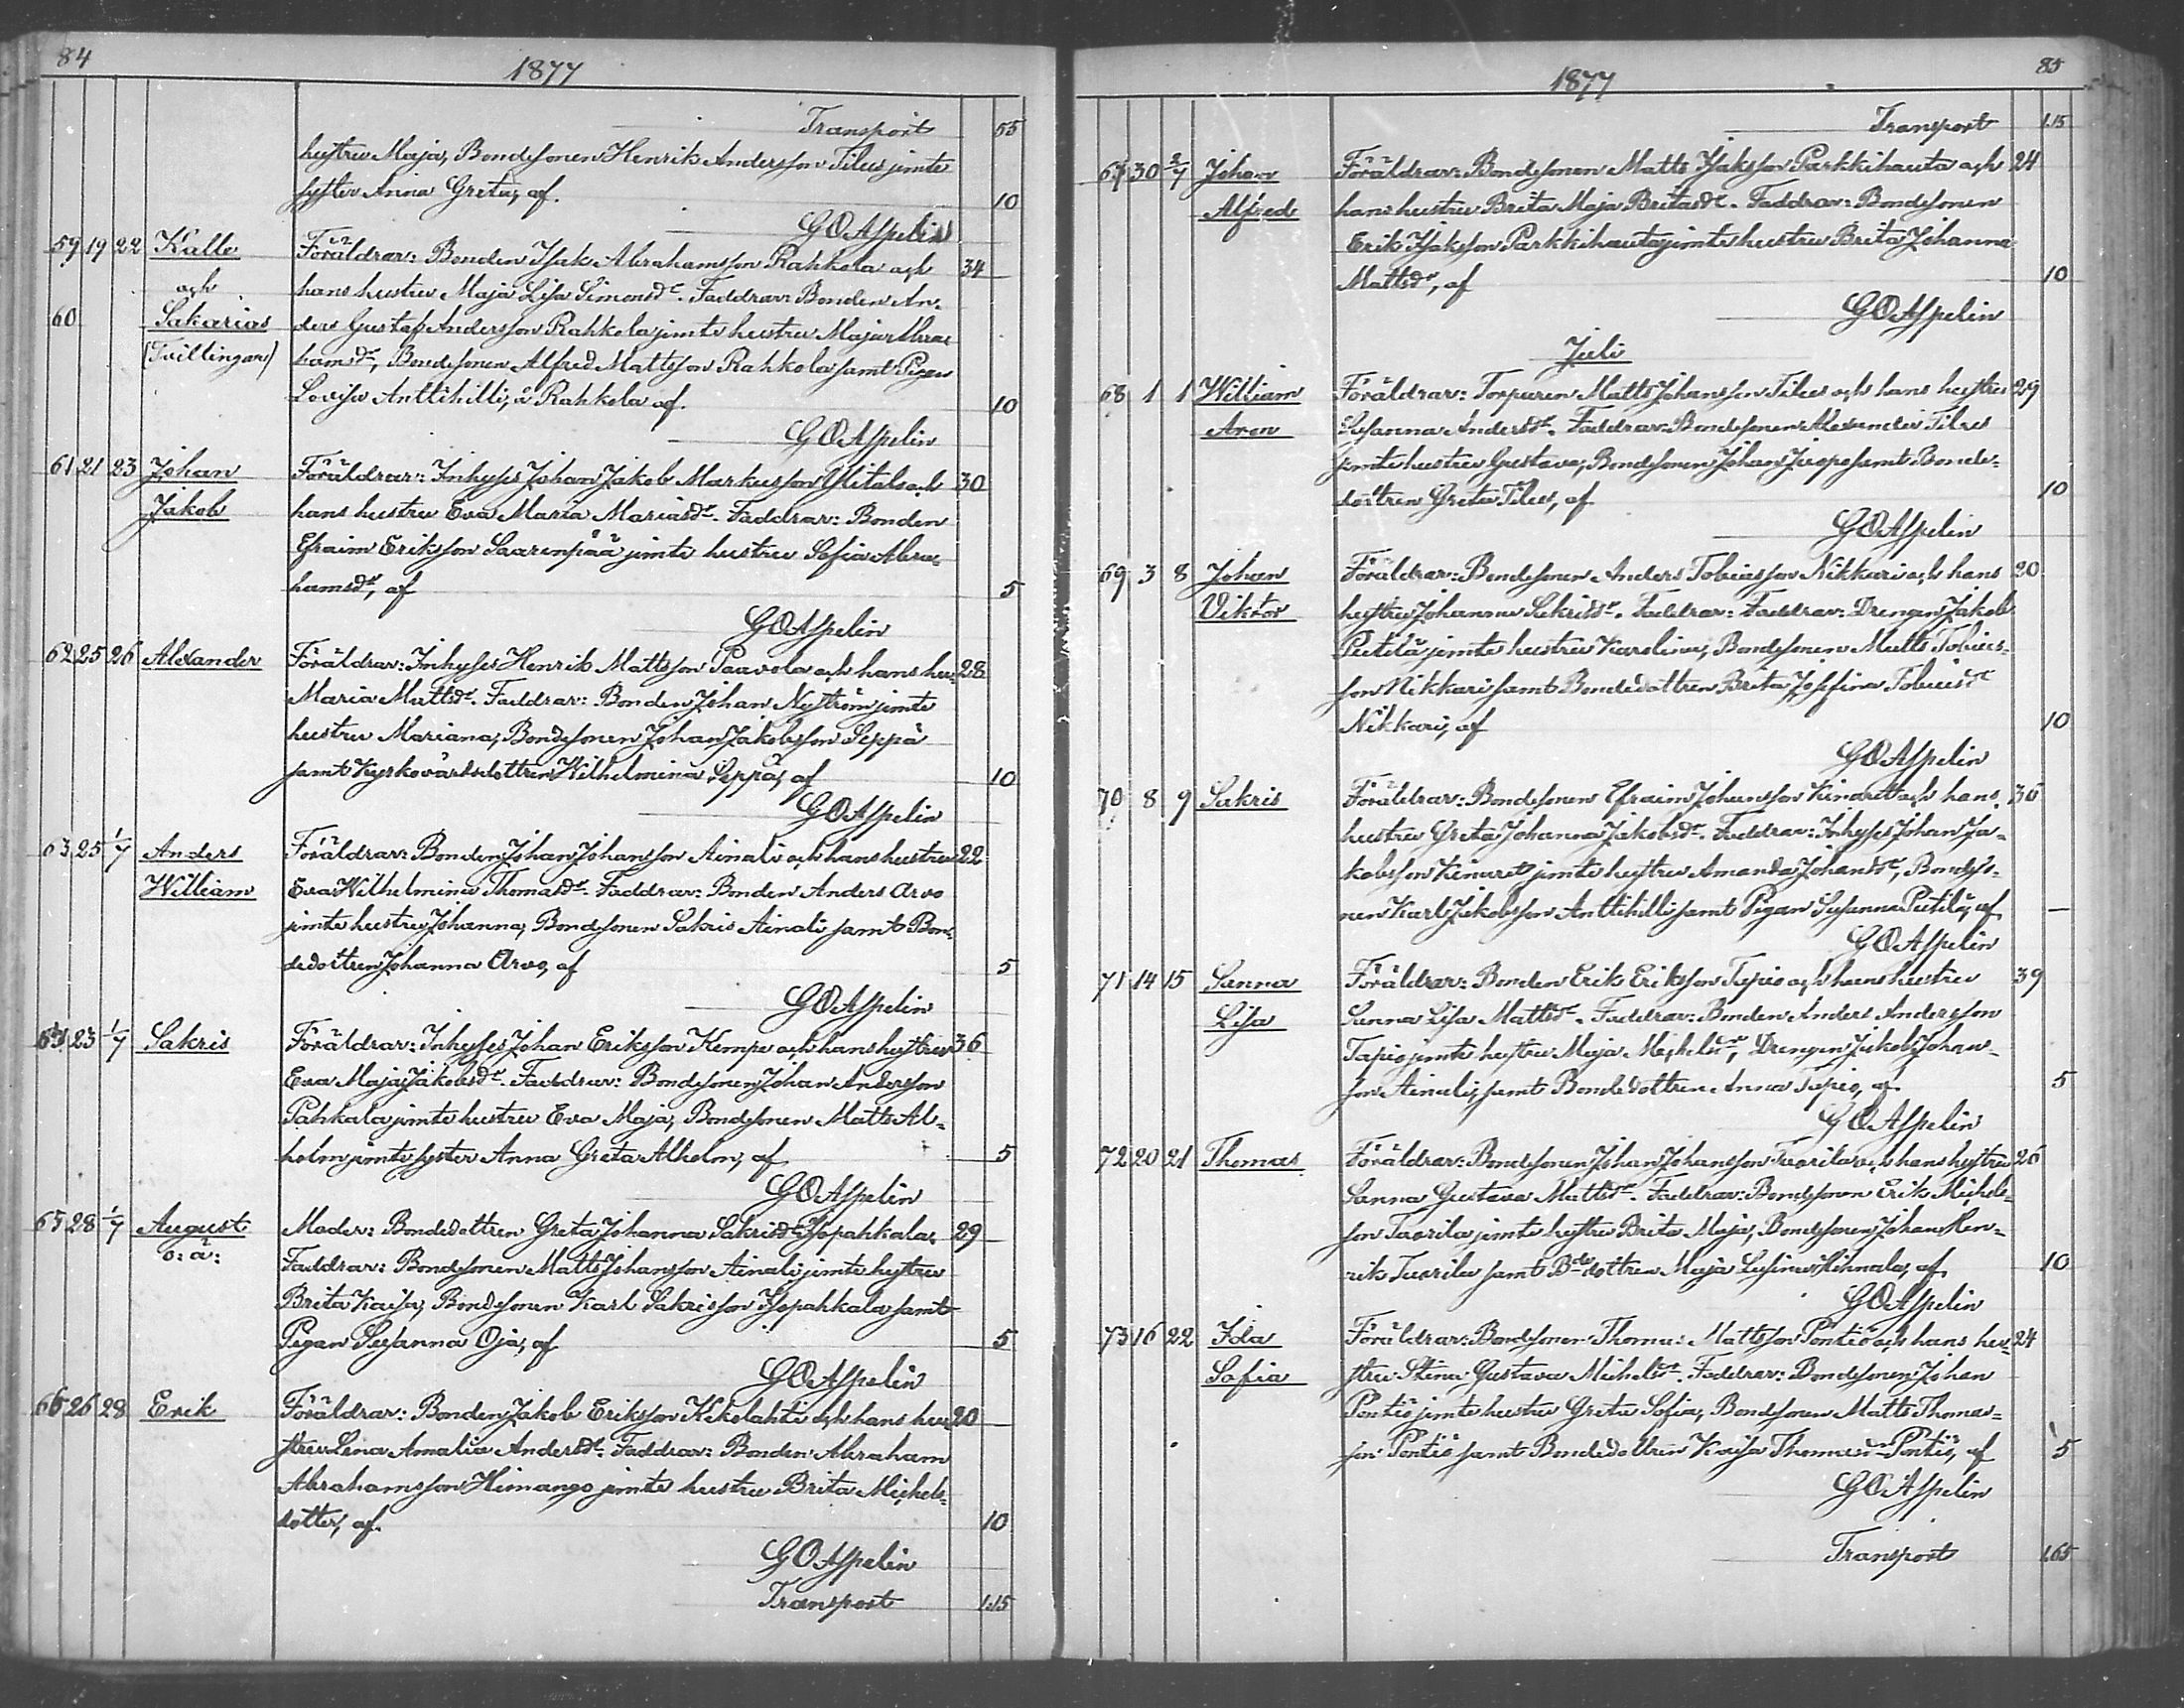 84
1877
Transport 55
hustru Maja, Bondesonen Henrik Andersson Tilus jimte
syster Anna Greta, af. 10
G O Aspelin
59 19 22 Kalle Föräldrar: Bonden Isak Abrahamsson Rahkola och 34
och hans hustru Maja Lisa Simonsdr. Faddrar: Bonden An-
60 Sakarias ders Gustaf Andersson Rahkola jimte hustru Maja Abra-
(Tvillingar) hamsdr, Bondesonen Alfred Mattsson Rahkola samt Pigan
Lovisa Anttihilli, å Rahkola af. 10
G O Aspelin
61 21 23 Johan Föräldrar: Inhyses Johan Jakob Markusson Ylitalo och 30
Jakob hans hustru Eva Maria Mariasdr. Faddrar: Bonden
Efraim Eriksson Saarenpää jimte hustru Sofia Abra-
hamsdr, af 5
G O Aspelin
62 25 26 Alexander Föräldrar: Inhyses Henrik Mattsson Paavola och hans hu- 28
Maria Mattsdr. Faddrar: Bonden Johan Nyström jimte
hustru Mariana, Bondesonen Johan Jakobsson Seppä
samt Kyrkovärdsdottren Wilhelmina Seppä, af 10
G O Aspelin
63 25 1/7 Anders Föräldrar: Bonden Johan Johansson Ainali och hans hustru 22
William Eva Wilhelmina Thomasdr. Faddrar: Bonden Anders Arvo
jimte hustru Johanna, Bondesonen Sakris Ainali samt Bon-
dedottren Johanna Arvo, af 5
G O Aspelin
64 23 1/7 Sakris Föräldrar: Inhyses Johan Eriksson Kempe och hans hustru 36
Eva Maja Jakobsdr. Faddrar: Bondesonen Johan Andersson
Pahkala jimte hustru Eva Maja, Bondesonen Matts Al-
holm jimte syster Anna Greta Alholm, af 5
G O Aspelin
65 28 1/7 August Moder: Bondedottren Greta Johanna Sakrisdr Isopahkala. 29
o: ä: Faddrar: Bondesonen Matts Johansson Ainali jimte hustru
Brita Kaisa, Bondesonen Karl Sakrisson Isopahkala samt
Pigan Susanna Oja, af 5
G O Aspelin
66 26 28 Erik Föräldrar: Bonden Jakob Eriksson Kekolahti och hans hu- 20
stru Lena Amalia Andersdr. Faddrar: Bonden Abraham
Abrahamsson Himango jimte hustru Brita Michels-
dotter, af. 10
G O Aspelin
Transport 1.15
85
1877
Transport 1.15
67 30 2/7 Johan Föräldrar: Bondesonen Matts Isaksson Parkkihauta och 24
Alfred hans hustru Brita Maja Britasdr. Faddrar: Bondesonen
Erik Isaksson Parkkihauta jimte hustru Brita Johanna
Mattsdr, af 10
G O Aspelin
Juli
68 1 1 William Föräldrar: Torparen Matts Johansson Tilus och hans hustru 29
Aron Susanna Andersdr. Faddrar: Bondesonen Alexander Tilus
jimte hustru Gustava, Bondesonen Johan Juopo samt Bonde-
dottren Greta Tilus, af 10
G O Aspelin
69 3 8 Johan Föräldrar: Bondesonen Anders Tobiasson Nikkari och hans 20
Viktor hustru Johanna Sakrisdr. Faddrar: Faddrar: Drengen Jakob
Putila jimte hustru Karolina, Bondesonen Matts Tobias-
son Nikkari samt Bondedottren Brita Josefina Tobiasdr
Nikkari, af 10
G O Aspelin
70 8 9 Sakris Föräldrar: Bondesonen Efraim Johansson Kinaret och hans 36
hustru Greta Johanna Jakobsdr. Faddrar: Inhyses Johan Ja-
kobsson Kinaret jimte hustru Amanda Johansdr, Bondeso-
nen Karl Jakobsson Anttihilli samt Pigan Susanna Putila, af —
G O Aspelin
71 14 15 Sanna Föräldrar: Bonden Erik Eriksson Tapio och hans hustru 39
Lisa Sanna Lisa Mattsdr. Faddrar: Bonden Anders Andersson
Tapio jimte hustru Maja Michelsdr, Drengen Jakob Johans-
son Ainali, samt Bondedottren Anna Tapio, af. 5
G O Aspelin
72 20 21 Thomas Föräldrar: Bondesonen Johan Johansson Tuorila och hans hustru 26
Sanna Gustava Mattsdr. Faddrar: Bondesonen Erik Michels-
son Tuorila jimte hustru Brita Maja, Bondesonen Johan Hen-
rik Tuorila samt Bde dottren Maja Lusina Hinnala, af 10
G O Aspelin
73 16 22 Ida Föräldrar: Bondesonen Thomas Mattsson Pöntiö och hans hu- 24
Sofia stru Stina Gustava Michelsdr. Faddrar: Bondesonen Johan
Pöntiö jimte hustru Greta Sofia, Bondesonen Matts Thomas-
son Pöntiö samt Bondedottren Kaisa Thomasdr Pöntiö, af 5
G O Aspelin
Transport 1.65